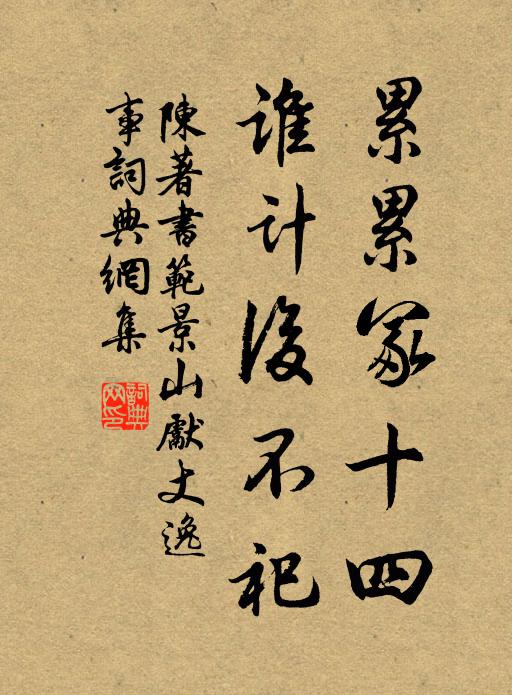 累累冢十四
誰計後不祀
陳著書範景山獻丈逸
事詞典網集
詞典網印